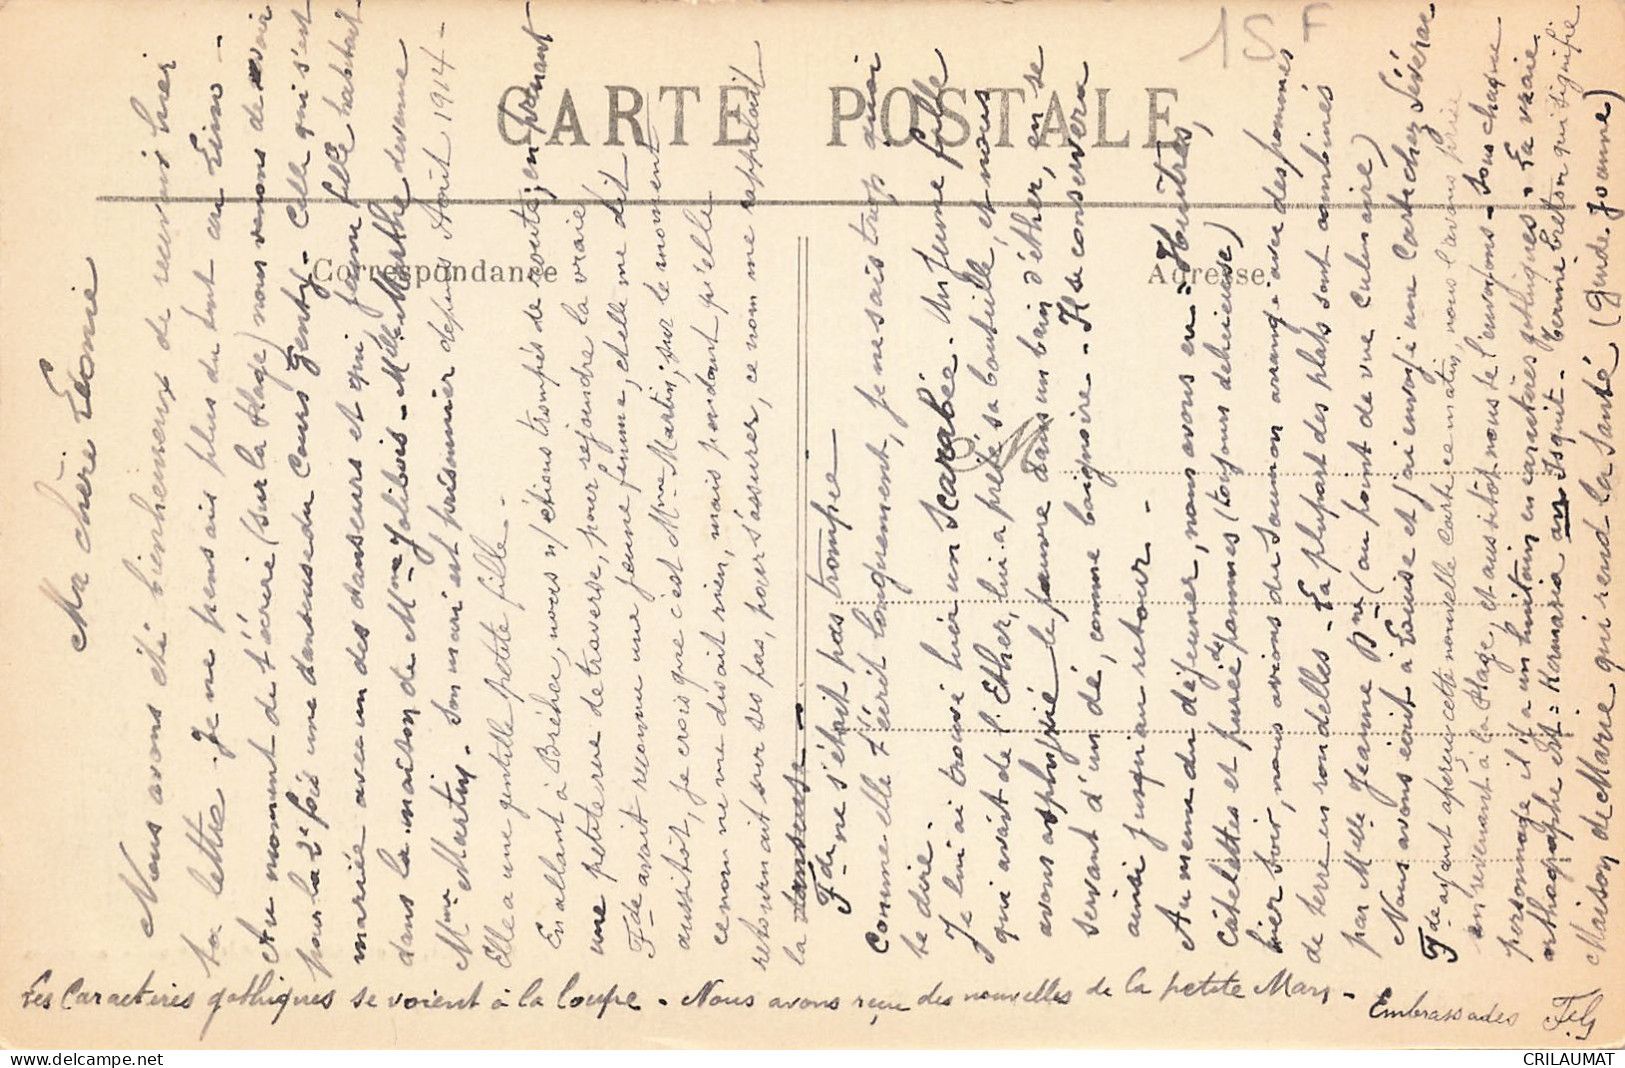 15 F
CARTE POSTALE
Correspondance
Adresse
Ma chère Léonie
Nous avons été bienheureux de recevoir hier
ta lettre. Je ne pensais plus du tout au Limo -
Au moment de t'écrire (sur la Plage) nous venons de voir
pour la 2e fois une danseuse du Cours Gentzy - Celle qui s'est
mariée avec un des danseurs et qui jeune fille habitait
dans la maison de Mme Jolibois - Melle Marthe devenue
Mme Martin. Son mari est prisonnier depuis Août 1914 -
Elle a une gentille petite fille -
En allant à Bréhec, nous n/ étions trompés de route, en prenant
une petite rue de traverse, pour rejoindre la vraie
Fde avait reconnu une jeune femme, et elle me dit
aussitôt, je crois que c'est Mme Martin, sur le moment
ce nom ne me disait rien, mais pendant qu'elle
retournait sur ses pas, pour s'assurer, ce nom me rappelait
la danseuse -
Fde ne s'était pas trompée
Comme elle t'écrit longuement, je ne sais trop quoi
te dire.
Je lui ai trouvé hier un Scarabée. Un jeune fille
qui avait de l'Ether, lui a prêté sa bouteille, et nous
avons asphyxié le pauvre dans un bain d'éther, en se
servant d'un dé, comme baignoire - Il se conservera
ainsi jusqu'au retour -
Au menu du déjeuner, nous avons eu = Huitres,
Côtelettes et purée de pommes (toujours délicieuse)
hier soir, nous avions du Saumon arrangé avec des pommes
de terre en rondelles - La plupart des plats sont combinés
par Melle Jeanne Bne (au point de vue culinaire)
Nous avons écrit à Louise et j'ai envoyé une Carte chez Séverac
Fde ayant aperçu cette nouvelle Carte ce matin, nous l'avons prise
en revenant à la Plage, et aussitôt nous te l'envoyons - Sous chaque
personnage il y a un huitain en caractères gothiques - La vraie
orthographe est = Kermaria an Isquit - terme breton qui signifie
Maison de Marie qui rend la Santé (guide Joanne)
Les Caractères gothiques se voient à la loupe - Nous avons reçu des nouvelles de la petite Mary -
Embrassades
CRILAUMAT